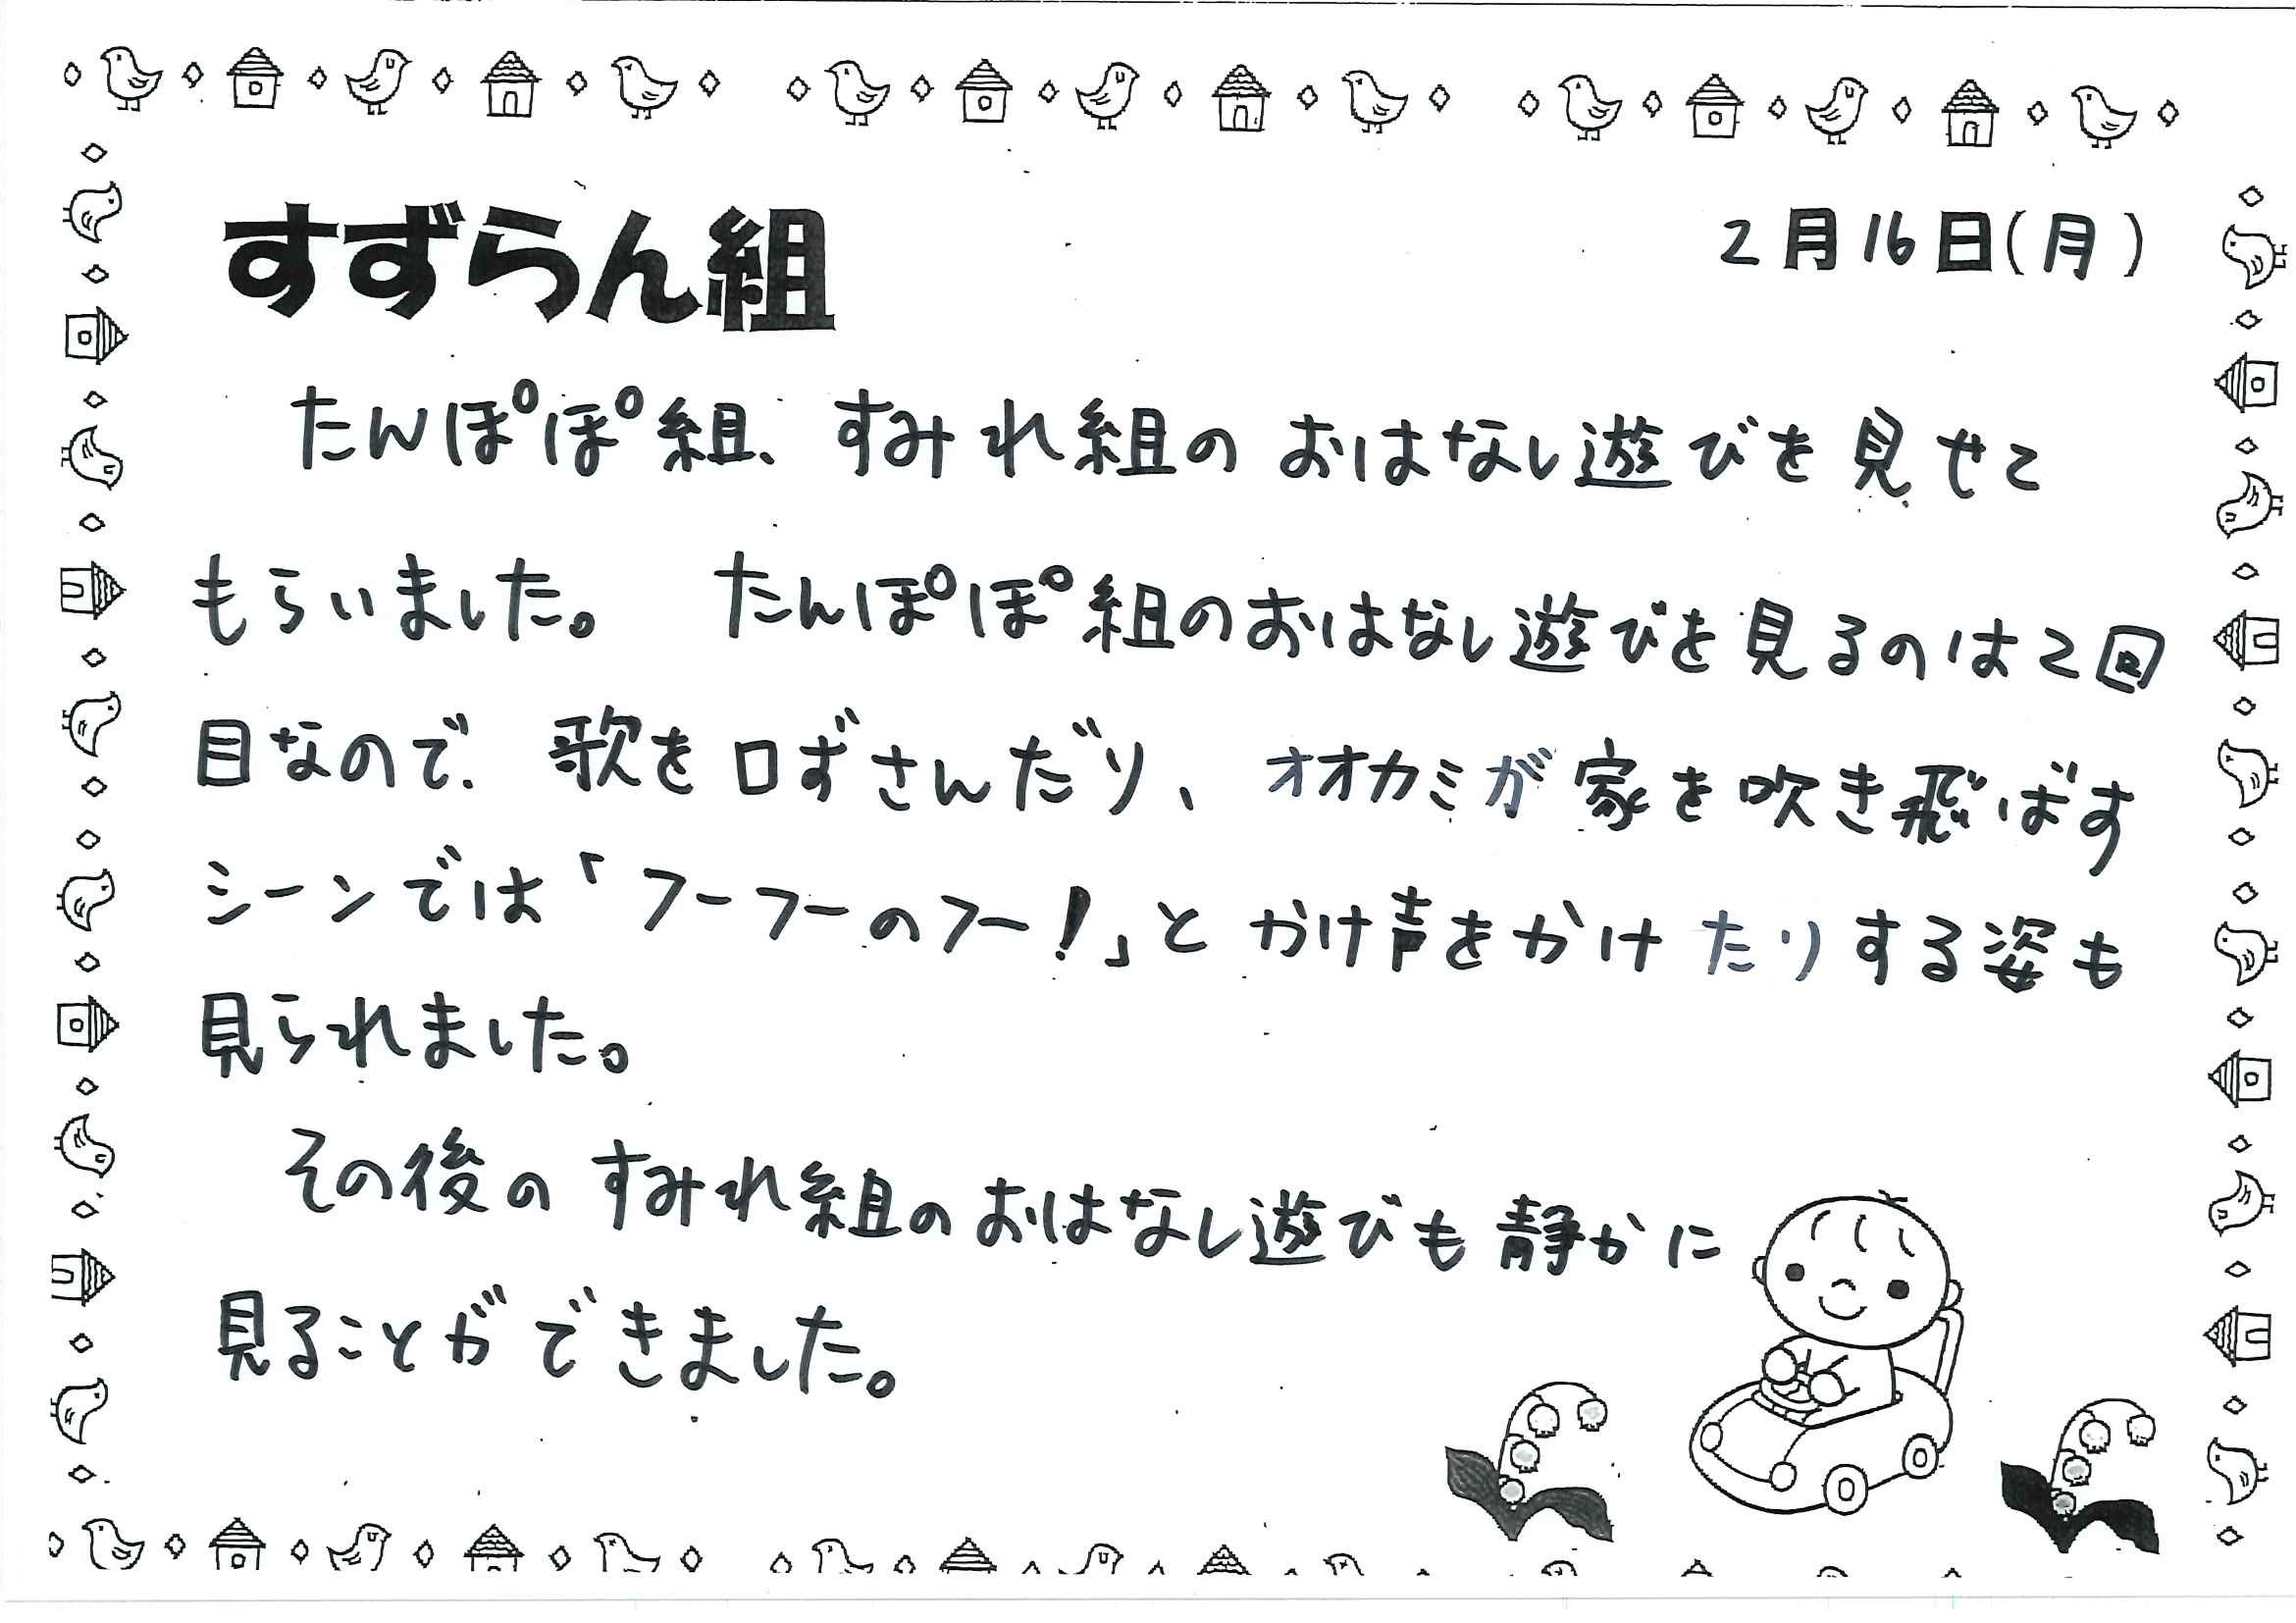 すずらん組
2月16日(月)
たんぽぽ組、すみれ組のおはなし遊びを見せて
もらいました。 たんぽぽ組のおはなし遊びを見るのは2回
目なので、歌を口ずさんだり、オオカミが家を吹き飛ばす
シーンでは「フーフーのフー!」とかけ声をかけたりする姿も
見られました。
その後のすみれ組のおはなし遊びも静かに
見ることができました。